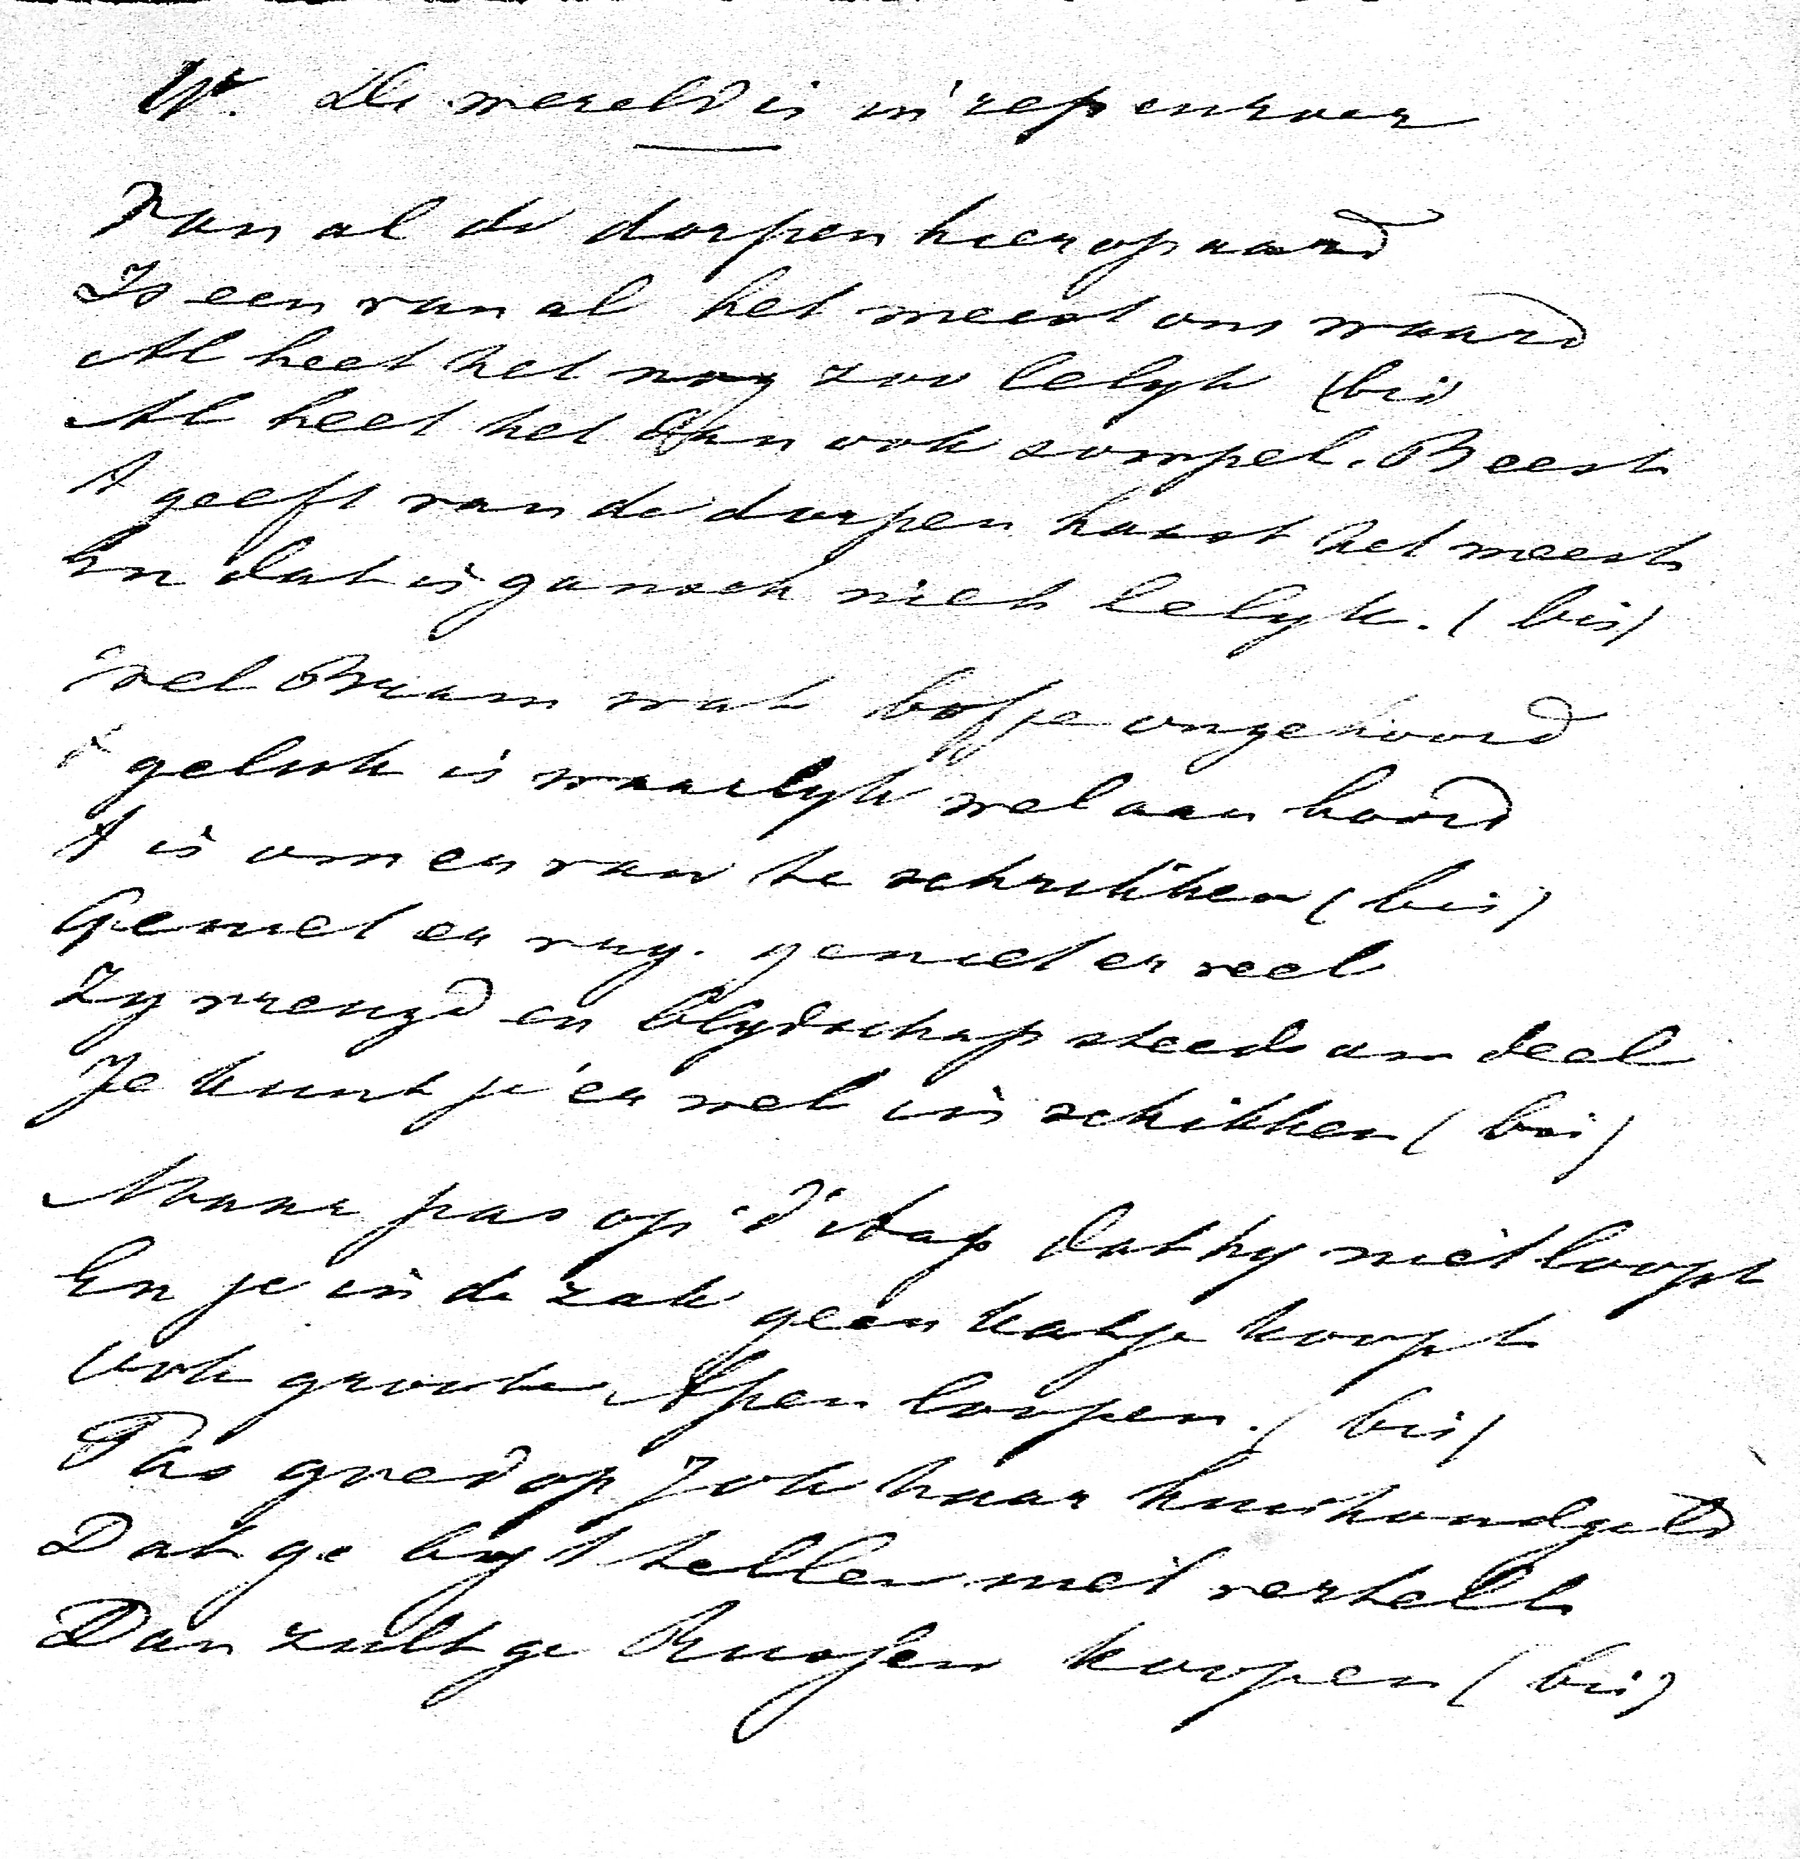 W. De wereld is in rep en roer
Van al de dorpen hier op aard
Is een van al het meest ons waard
Al heet het nog zoo lelyk (bis)
Al heet het dan ook zompel. Beest
t geeft van de dorpen haast het meest
En dat is gansch niet lelyk. (bis)
Wel Braam wat bofje ongehoord
t geluk is waarlyk wel aan boord
t is om er van te schrikken (bis)
Geniet er van. geniet er veel
Zy vreugd en blydschap steeds uw deel
Je kunt je er wel in schikken (bis)
Maar pas op d' Aap dat hy niet loopt
En je in de zak geen katje koopt
Ook groote Apen loopen. (bis)
Pas goed op Jok haar huishoudgeld
Dat ge by 't tellen niet vertelt
Dan zult ge koopen (bis)